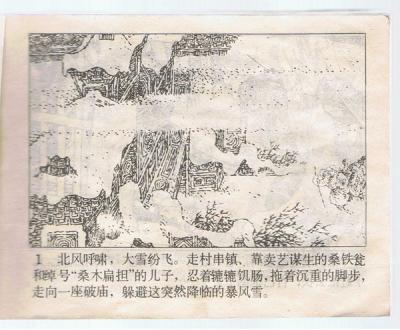 1 北风呼啸，大雪纷飞。走村串镇、靠卖艺谋生的桑铁瓮
和绰号“桑木扁担”的儿子，忍着辘辘饥肠，拖着沉重的脚步，
走向一座破庙，躲避这突然降临的暴风雪。